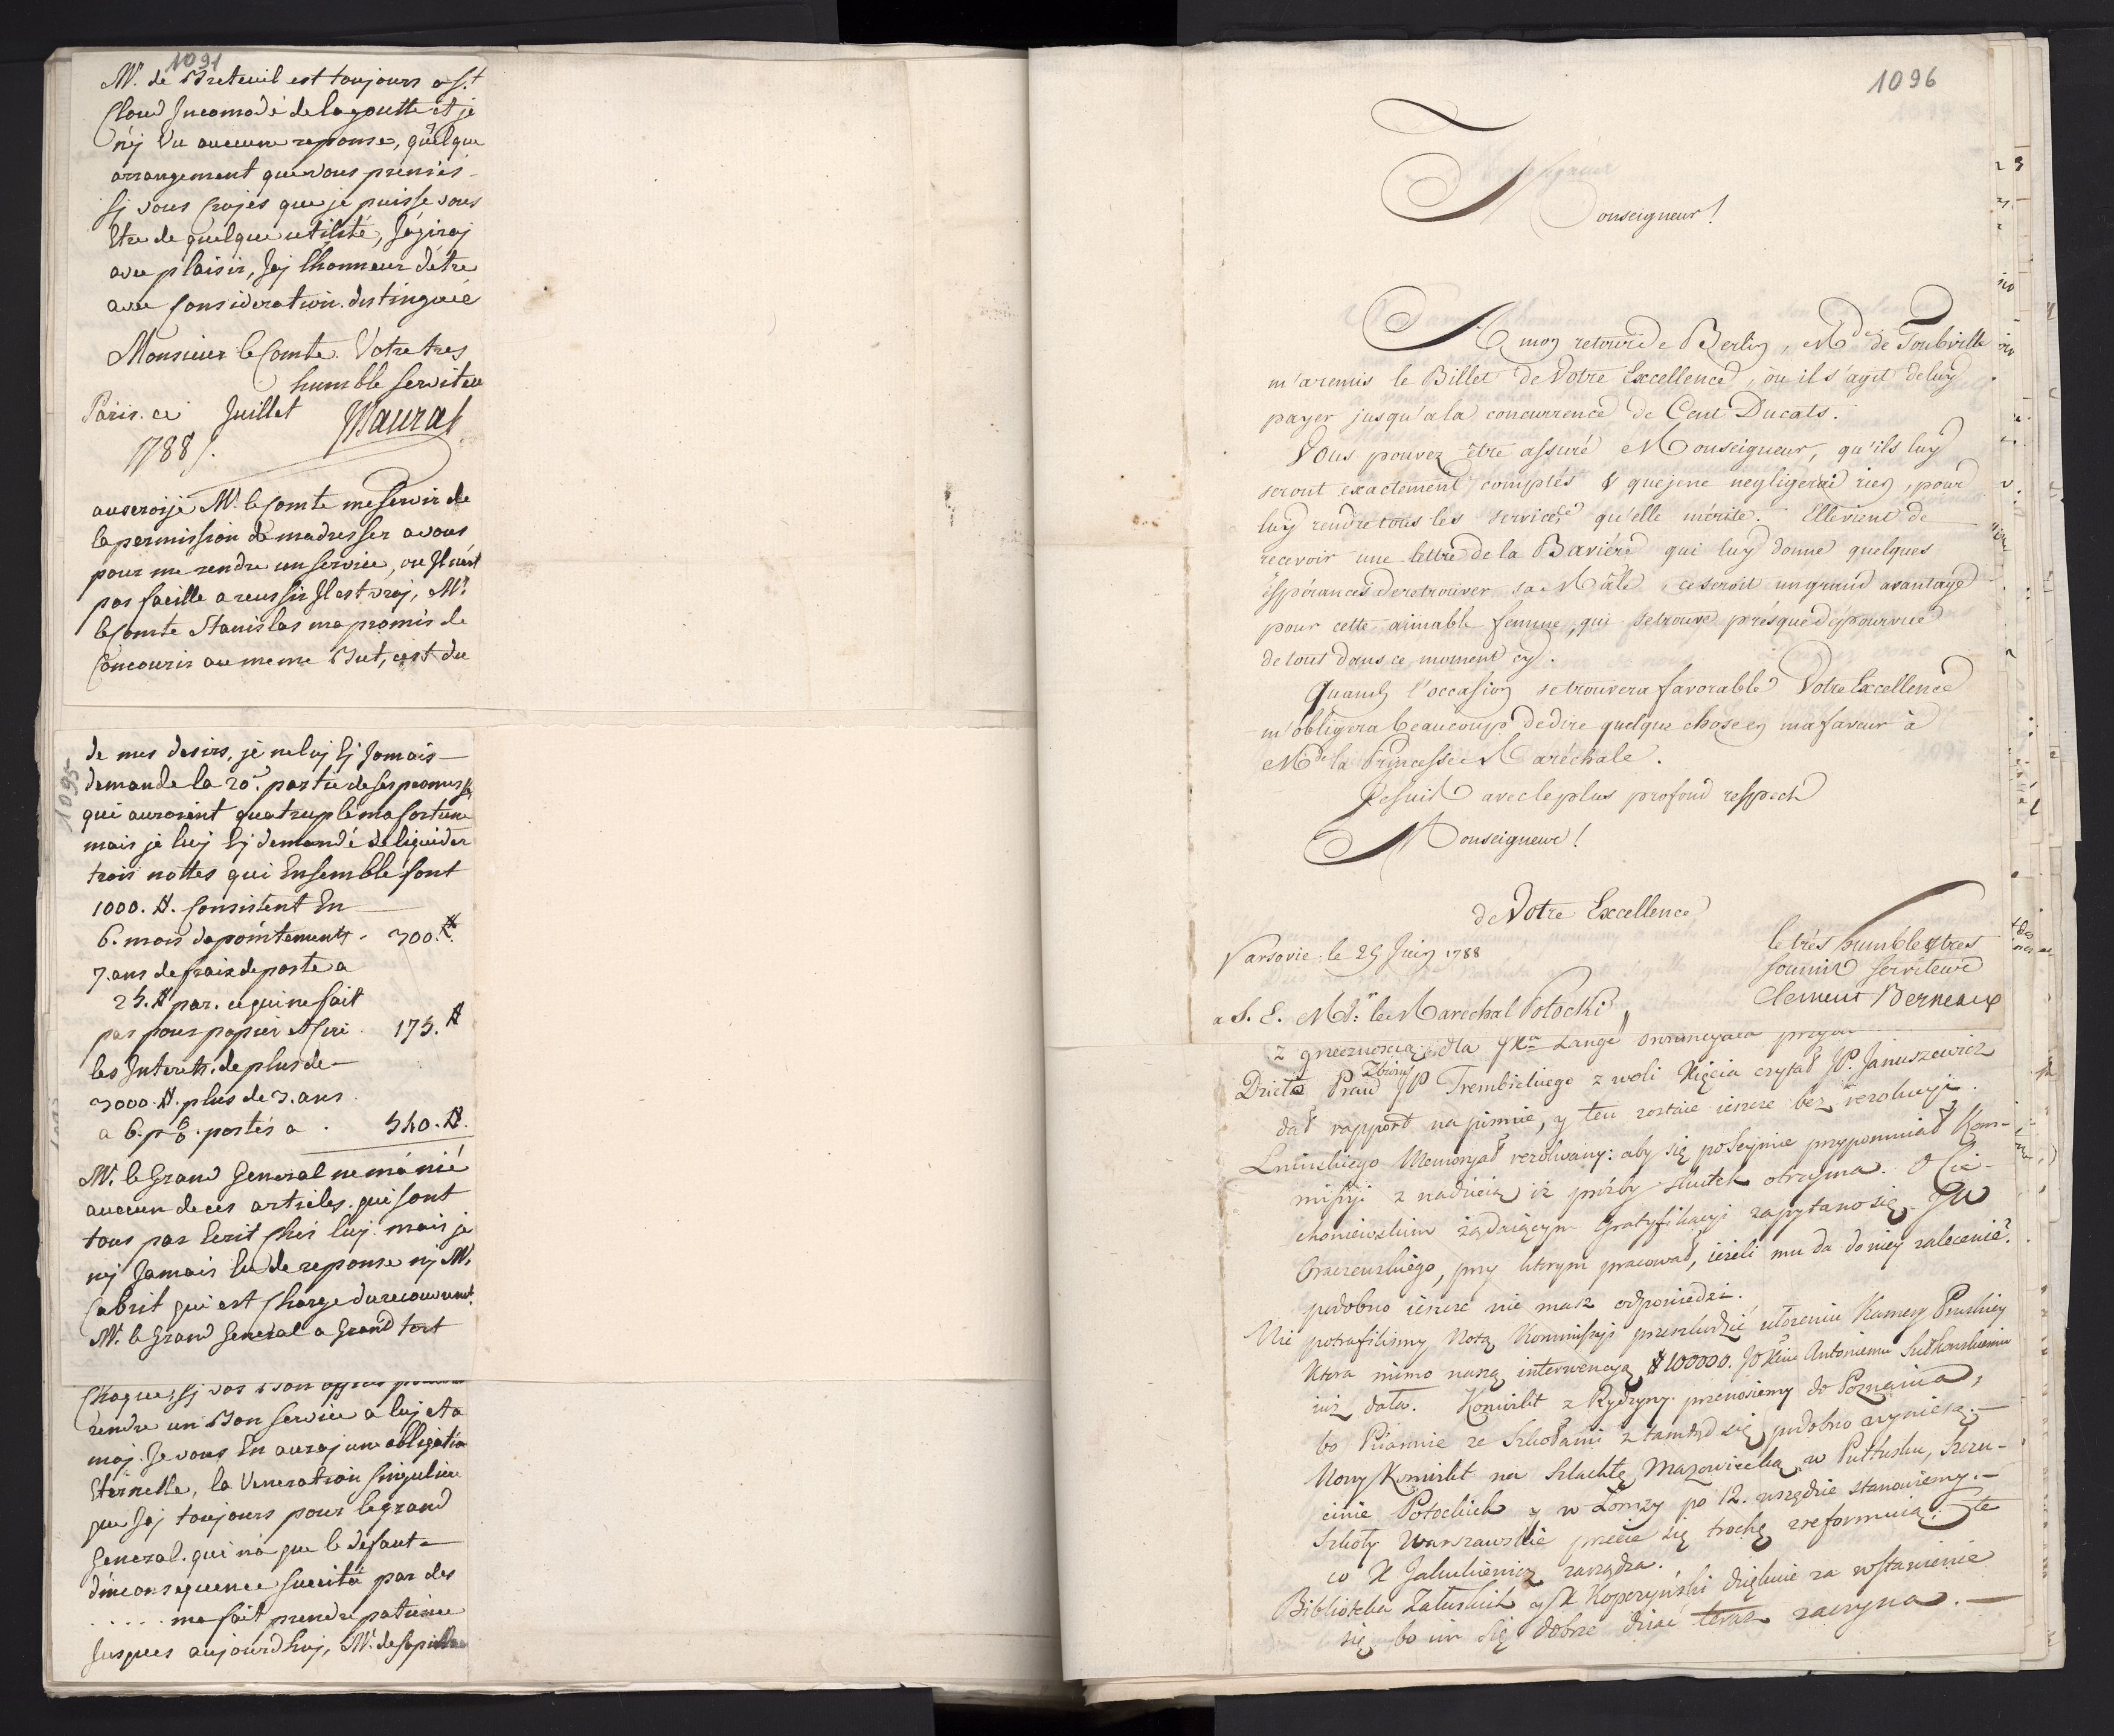 1091
Mr. de Breteuil est toujours a St.
Cloud Incomodé de la goutte et je
n'ej Vu aucune reponse, quelque
arrangement que vous preniés
sj vous Crojés que je puisse vous
Etre de quelque utilité, J'agiraj
avec plaisir, Jaj lhonneur détre
avec Consideration distinguée
Monsieur le Comte. Votre tres
humble serviteur
Paris. ce Juillet Maurat
1788.
auseroije Mr. le Comte me servir de
la permission de madresser a vous
pour me rendre un service, ou Il n'est
pas facille a reussir Il est vraj, Mr.
le Comte Stanislas ma promis de
Concourir au meme But, c'est du
1095
de mes desirs, je ne luj Ej Jamais
demande la 20e. partie de ses promesses
qui auroient quatruplé ma fortune
mais je luj Ej demandé de liquider
trois nottes qui Ensemble font
1000. #. Consistent En
6. mois dapointements. 300. #.
7. ans de fraix de poste a
25. # par. ce qui ne fait
pas pour papier et Cire. 175. #
les Interets. de plus de
3000. #. plus de 3. ans
a 6. p %. portés a. 540. #.
Mr. le Grand General ne ma nié
aucun de ces articles. qui sont
tous par Ecrit Chés luj. mais je
nej Jamais Eu de reponse nj Mr.
Cabrit qui est Chargé du recouvremt.
Mr. le Grand General a Grand tort
rendre un Bon service a luj et a
moj. Je vous En auraj une obligation
Eternelle, la Veneration singuliere
que Jaj toujours pour le grand
General. qui na que le defaut
dinconsequence suscité par des
..... ma fait prendre patience
Jusques aujourdhuj, Mr. de
1096
Monseigneur!
A mon retour de Berlin, Mde de Toubville
m'a remis le Billet de Votre Excellence, où il s'agit de luy
payer jusqu'a la concurrence de Cent Ducats.
Vous pouvez être assuré Monseigneur, qu'ils luy
seront exactement comptés & que je ne negligerai rien, pour
luy rendre tous les services qu'elle mérite. Elle vient de
recevoir une lettre de la Baviére qui luy donne quelques
Espérances de retrouver sa Malle, ce seroit un grand avantage
pour cette aimable femme, qui se trouve présque dépourvue
de tout dans ce moment cy.
Quand l'occasion se trouvera favorable Votre Excellence
m'obligera beaucoup de dire quelque chose en ma faveur à
Mde la Princesse Maréchale.
Je suis avec le plus profond respect
Monseigneur!
de Votre Excellence
Varsovie le 25 Juin 1788
le trés humble & tres
soumis serviteur
Clement Berneaux
a S. E. Mr: le Maréchal Potocki
z grzecznoscią dla JKa Lange
Zbioru
Dzieła Praw JP Trembickiego z woli Xięcia czytał JP. Januszewicz
dał rapport na pismie, y ten zostaie ieszcze bez rezolucyi.
Lninskiego Memoryał rezolwany: aby się po Seymie przypomniał Kom-
missyi z nadzieią iż prózby skutek otrzyma. O Cie-
choniewskim żądaiącym Gratyfikacyi zapytano się JW
Oraczewskiego, przy którym pracował, ieżeli mu da do niey zalecenie?
podobno ieszcze nie masz odpowiedzi.
Nie potrafilismy Notą Kommissyi przeszkodzić ułożeniu Kamery Pruskiey
Ktora mimo naszą interwencyą # 100000. JO Xciu Antoniemu Sułkowskiemu
iuż dała. Konwikt z Rydzyny przenosiemy do Poznania,
bo Piiarowie ze Szkołami z tamtąd się podobno wyniosą.
Nowy Konwikt na Szlachtę Mazowiecką w Pułtusku, Szczu-
cinie Potockich y w Łomzy po 12. wszędzie stanowiemy.
Szkoły Warszawskie przecie się trochę zreformuią. Źle
co X Jakukiewicz zarządza.
Biblioteka Załuskich y X Kopczyński dziękuie za wstawienie
się bo im się dobrze dziać teraz zaczyna.